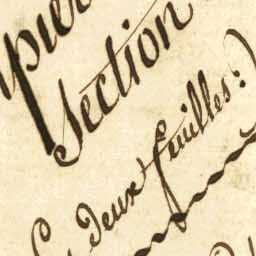 Section
(deux feuilles:)